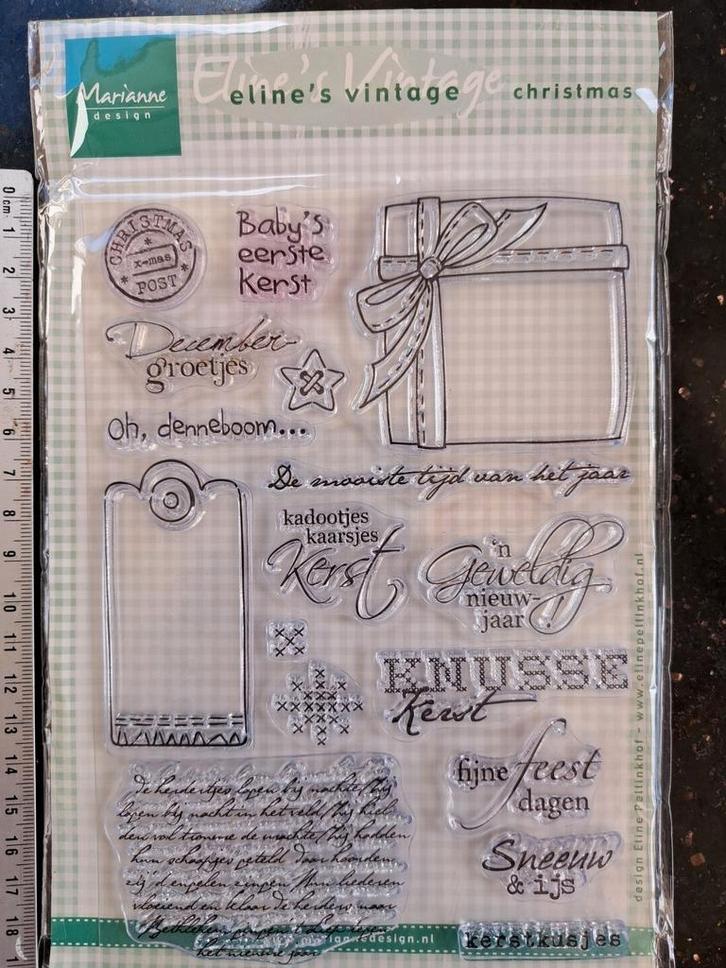 Eline's Vintage
eline's vintage christmas
Marianne
design
0 cm 1 2 3 4 5 6 7 8 9 10 11 12 13 14 15 16 17 18
CHRISTMAS
x-mas
POST
Baby's
eerste
Kerst
December
groetjes
Oh, denneboom...
De mooiste tijd van het jaar
kadootjes
kaarsjes
Kerst
'n
Geweldig
nieuw-
jaar!
KNUSSE
Kerst
fijne feest
dagen
Sneeuw
& ijs
kerstkusjes
De herdertjes lagen bij nachte/Zij
lagen bij nacht in het veld/Zij hiel-
den vol trouwe de wachte/Zij hadden
hun schaapjes geteld Daar hoorden
zij d'engelen zingen Hun liederen
vloeiend en klaar De herders naar
Bethlehem gingen 't liep tegen
het nieuwe jaar
design Eline Pellinkhof - www.elinepellinkhof.nl
mariannedesign.nl